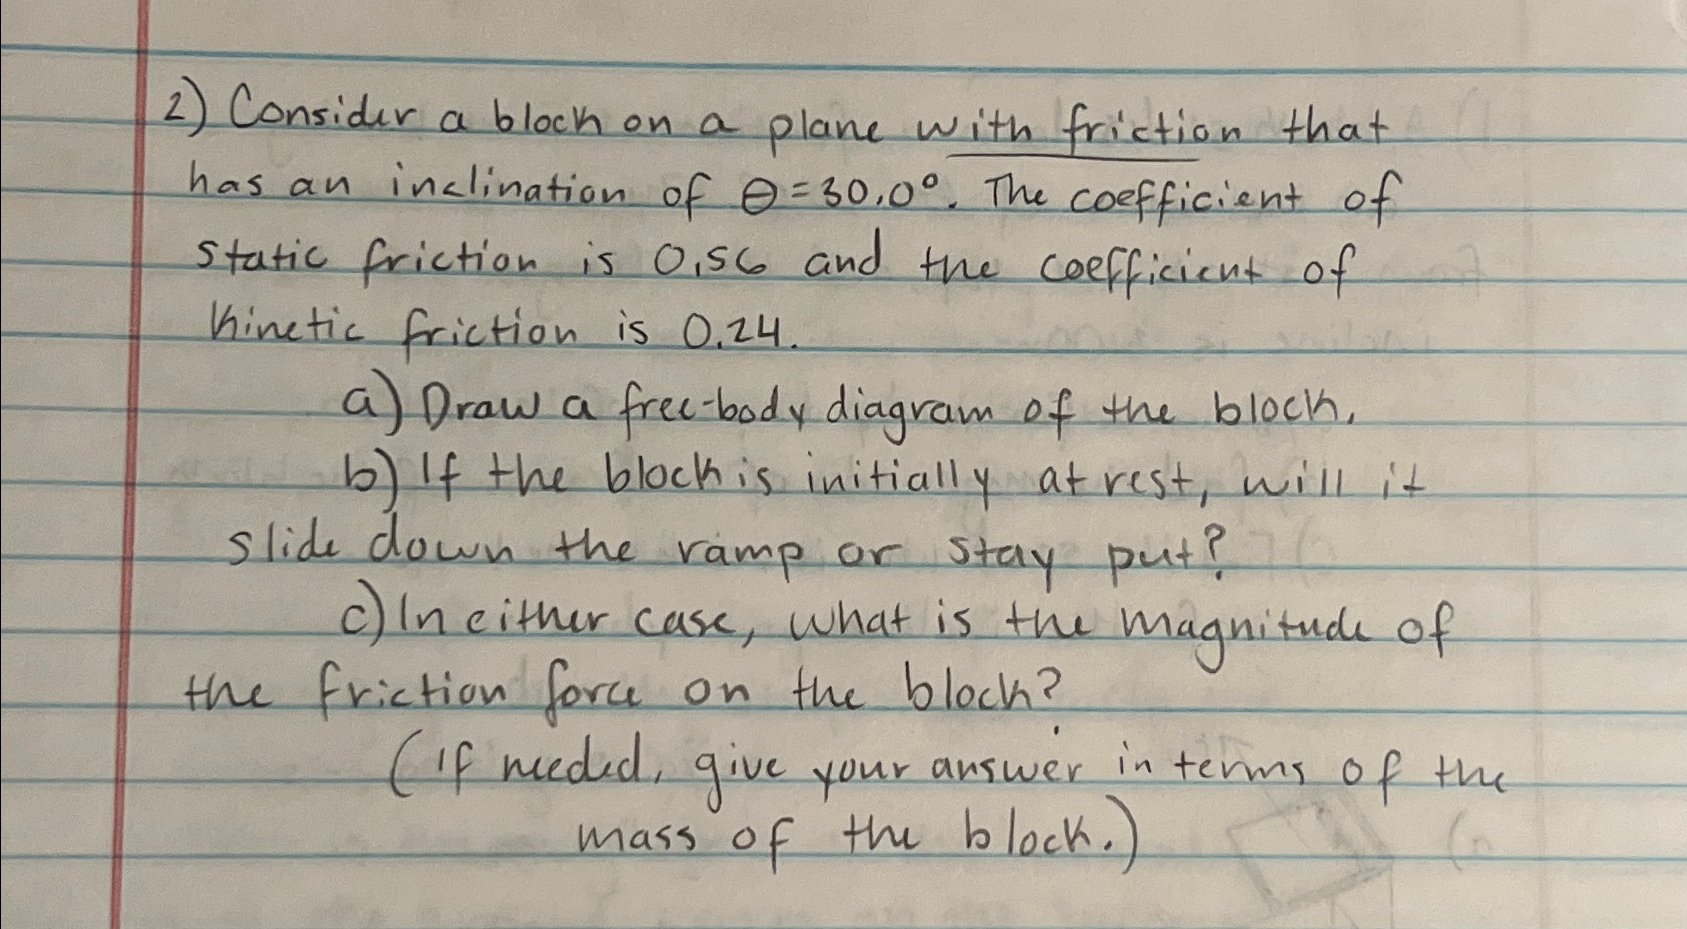 2) Consider a block on a plane with friction that
has an inclination of θ=30.0°. The coefficient of
static friction is 0.56 and the coefficient of
kinetic friction is 0.24.
a) Draw a free-body diagram of the block.
b) If the block is initially at rest, will it
slide down the ramp or stay put?
c) In either case, what is the magnitude of
the friction force on the block?
(If needed, give your answer in terms of the
mass of the block.)